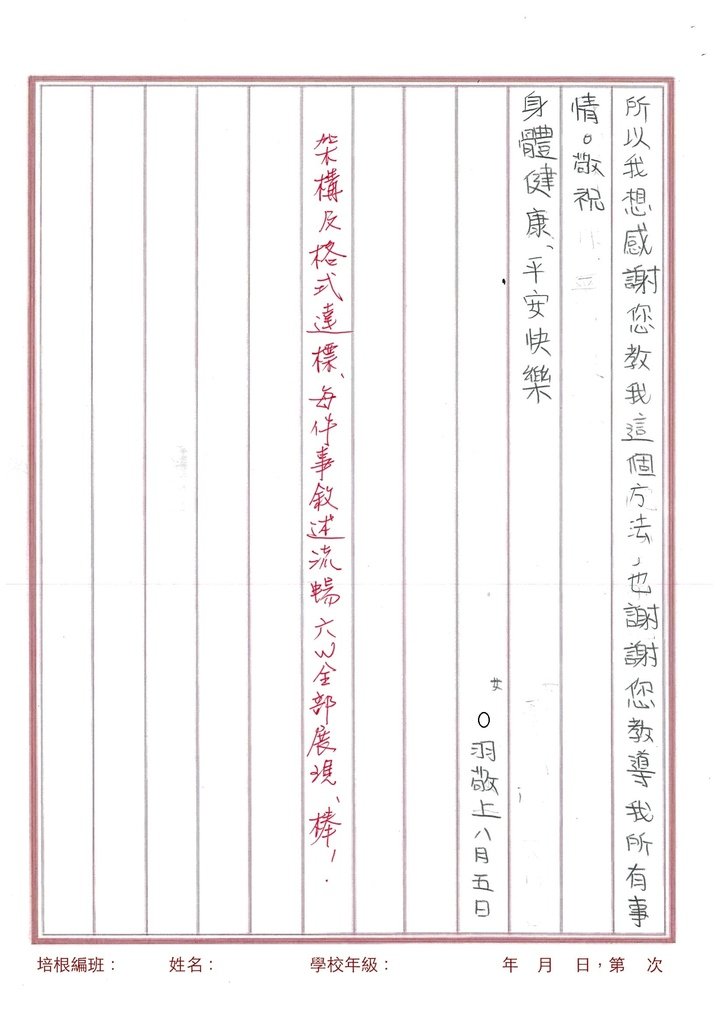 所以我想感謝您教我這個方法，也謝謝您教導我所有事
情。敬祝
身體健康、平安快樂
女
○羽敬上八月五日
架構及格式達標、每件事敘述流暢六W全部展現、棒！
培根編班： 姓名： 學校年級： 年 月 日，第 次